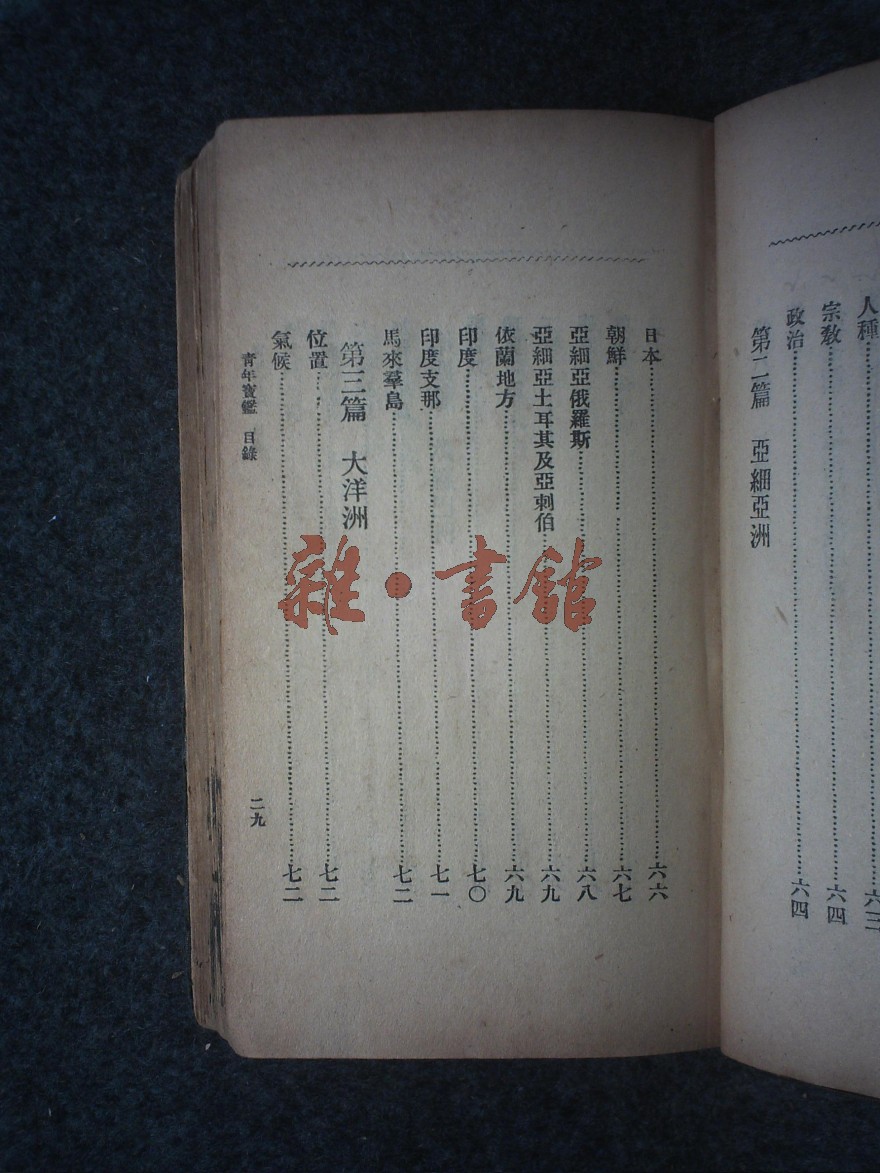 人種……六三
宗教……六四
政治……六四
第二篇　亞細亞洲
日本……六六
朝鮮……六七
亞細亞俄羅斯……六八
亞細亞土耳其及亞剌伯……六九
依蘭地方……六九
印度……七〇
印度支那……七一
馬來羣島……七二
第三篇　大洋洲
位置……七二
氣候……七二
青年寶鑑　目錄
二九
雜·書館